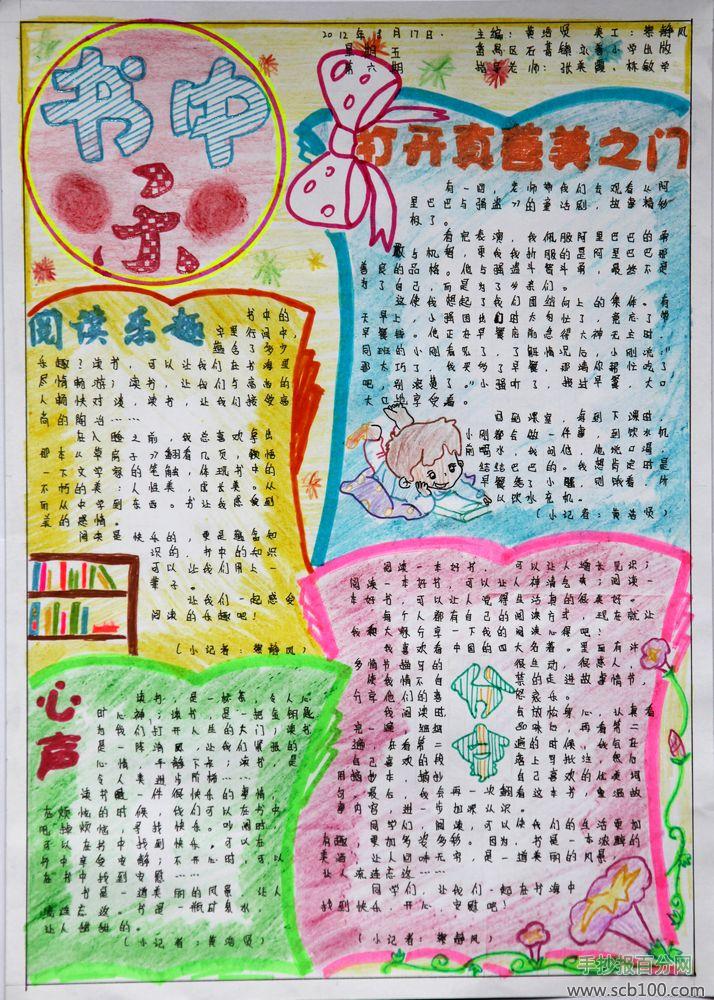 书中乐
2012年8月17日.
星期五
第六期
主编:黄浩贤 美工:黎静风
番禺区石碁镇永善小学出版
指导老师:张美霞、林敏华
打开真善美之门
有一回,老师带我们去观看从阿
里巴巴与强盗》的童话剧,故事精彩
极了。
看完表演,我佩服阿里巴巴的勇
敢与机智,更我我折服的是阿里巴巴那
善良的品格。他与强盗斗智斗勇,最终不是
为了自己,而是为了乡亲们。
这使我想起了我们团结向上的集体。有
天早上,小强因出门时太匆忙了,竟忘了带
早餐钱。他正在早餐店前急得大神无主时,
同班的小刚看见了,了解情况后,小刚说:"
那太巧了,我买多了早餐,那请你帮忙吃了
吧,别浪费了。"小强听了,接过早餐,大口
大口地享受着。
回到课室,每到下课时
小刚都会做一件事,到饮水机
前喝水,我问他,他说口渴
结结巴巴的。我想肯定时是
早餐给了小强,则饿着,所
以饮水充机。
(小记者:黄浩贤)
阅读乐趣
书中的
字里行间中,
蕴含了多少
乐趣?读书,可以让我们在书海里
尽情畅游;读书,让我们与高尚的
人畅快对谈,读书,让我们接受高
尚的陶冶……
在入睡之前,我总喜欢拿出
那本《草房子》翻看几页,领悟
一下文学家的笔触,体现书中的
不朽的美,人性美,成长美。从
而从中学到东西。书让我感受到
美的感情。
阅读是快乐的,更是蕴含知
识的,书中的知识
可以让我们用上一
辈子。
让我们一起感受
阅读的乐趣吧!
(小记者:黎静风)
心声
读书,是一杯茶,令人心
旷心神;读书,是一把金钥匙
为我们打开人生的大门;读书
是一阵清风,让我们紧张的
心情,平静下来;读书,是
令人类进步阶梯……
读书是一件很快乐的事情,
在烦恼的时候,我们可以在书中
甩掉烦恼,寻找快乐。吵闹时,
可以在书中找到快乐。可以在
书中享受安静;不开心时,可以
在书中找到安慰……
书是一道美丽的风景,让人
流连忘返。书是一瓶矿泉水,
让人甜甜的。
(小记者:黄浩贤)
阅读一本好书,可以让人增长见识;
阅读一本好书,可以让人神清气爽;阅读一
本好书,可以让人觉得生活真的很美好。
每个人都有自己的阅读方式,现在就让
我和大家分享一下我的阅读心得吧!
我喜欢看中国的四大名著。里面有许
多情节描写的很生动,很感人,
使我情不自禁的走进故事情节,
分享他们的喜怒哀乐。
我阅读时,先放松身心,认真看
完一遍,细细品味后,再看第二
遍,在看第二遍的时候,我会在
自己喜欢的段落上写批注,然后
用摘抄本,摘抄自己喜欢的优美词
句。最后,我会再一次翻看这本书,重温故
事内容,进一步加深认识。
同学们,阅读,可以使我们的生活更加
有趣,更加多姿多彩。因为,书是一本浓醇的
美酒,让人回味无穷,是一道美丽的风景,
让人流连忘返……
同学们,让我们一起在书海中
找到快乐、开心,安慰吧!
(小记者:黎静风)
手抄报百分网
www.scb100.com